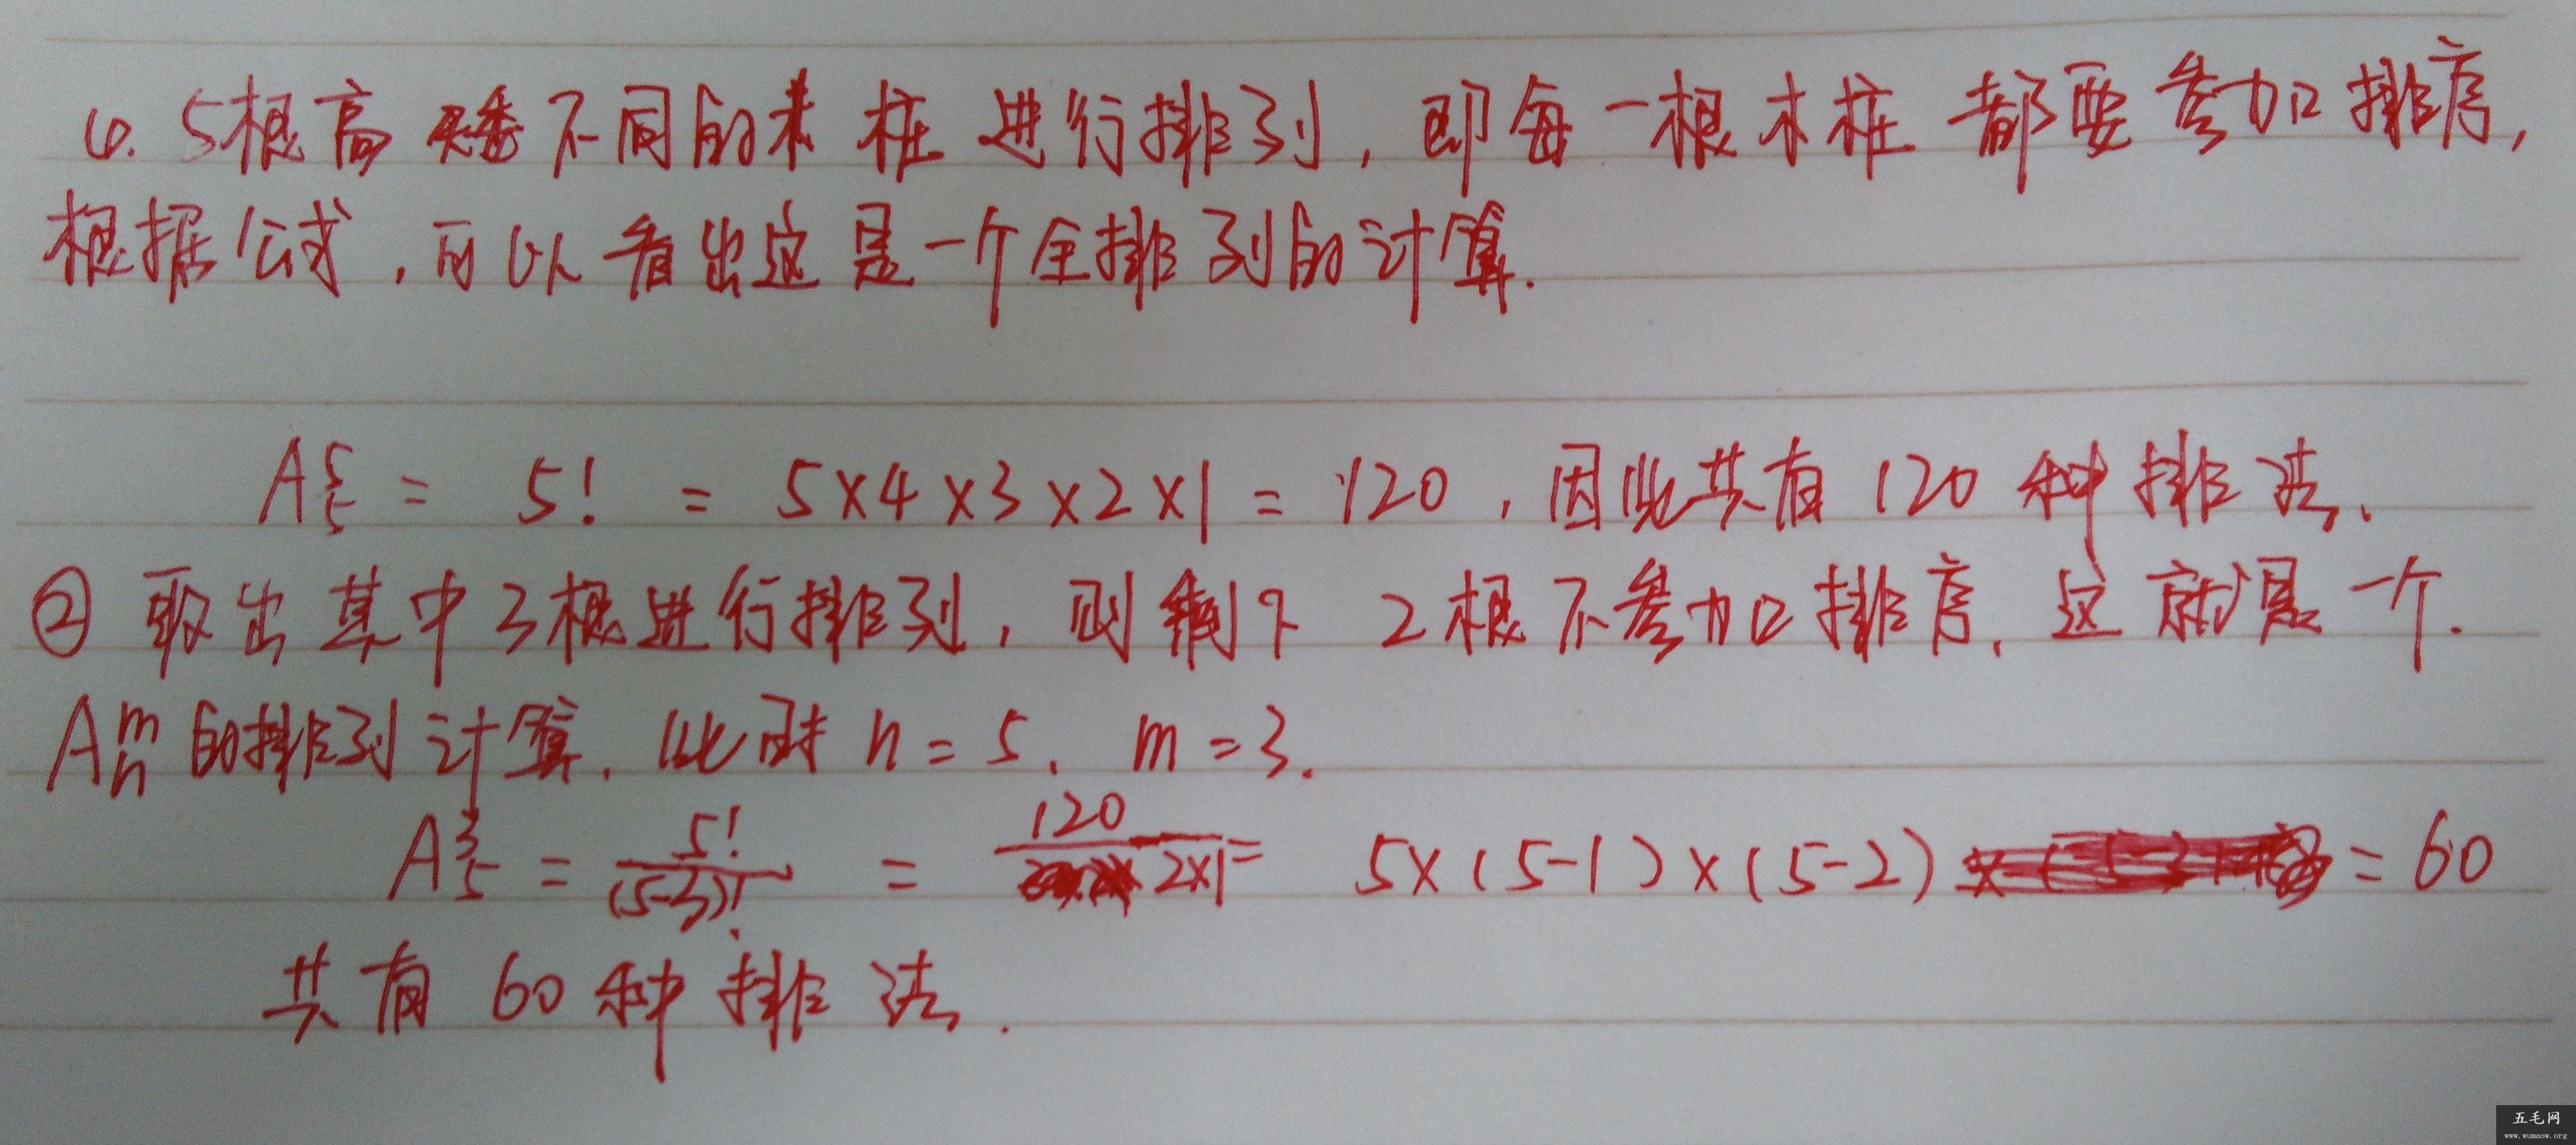 6. 5根高矮不同的木桩进行排列,即每一根木桩都要参加排序,
根据公式,可以看出这是一个全排列的计算.
A⁵₅ = 5! = 5×4×3×2×1 = 120,因此共有120种排法.
② 取出其中3根进行排列,则剩下2根不参加排序,这就是一个.
Aᵐₙ的排列计算.此时n=5. m=3.
A³₅ = 5!/(5-3)! = 120/2×1 = 5×(5-1)×(5-2) = 60
共有60种排法.
五毛网
www.wumaow.org